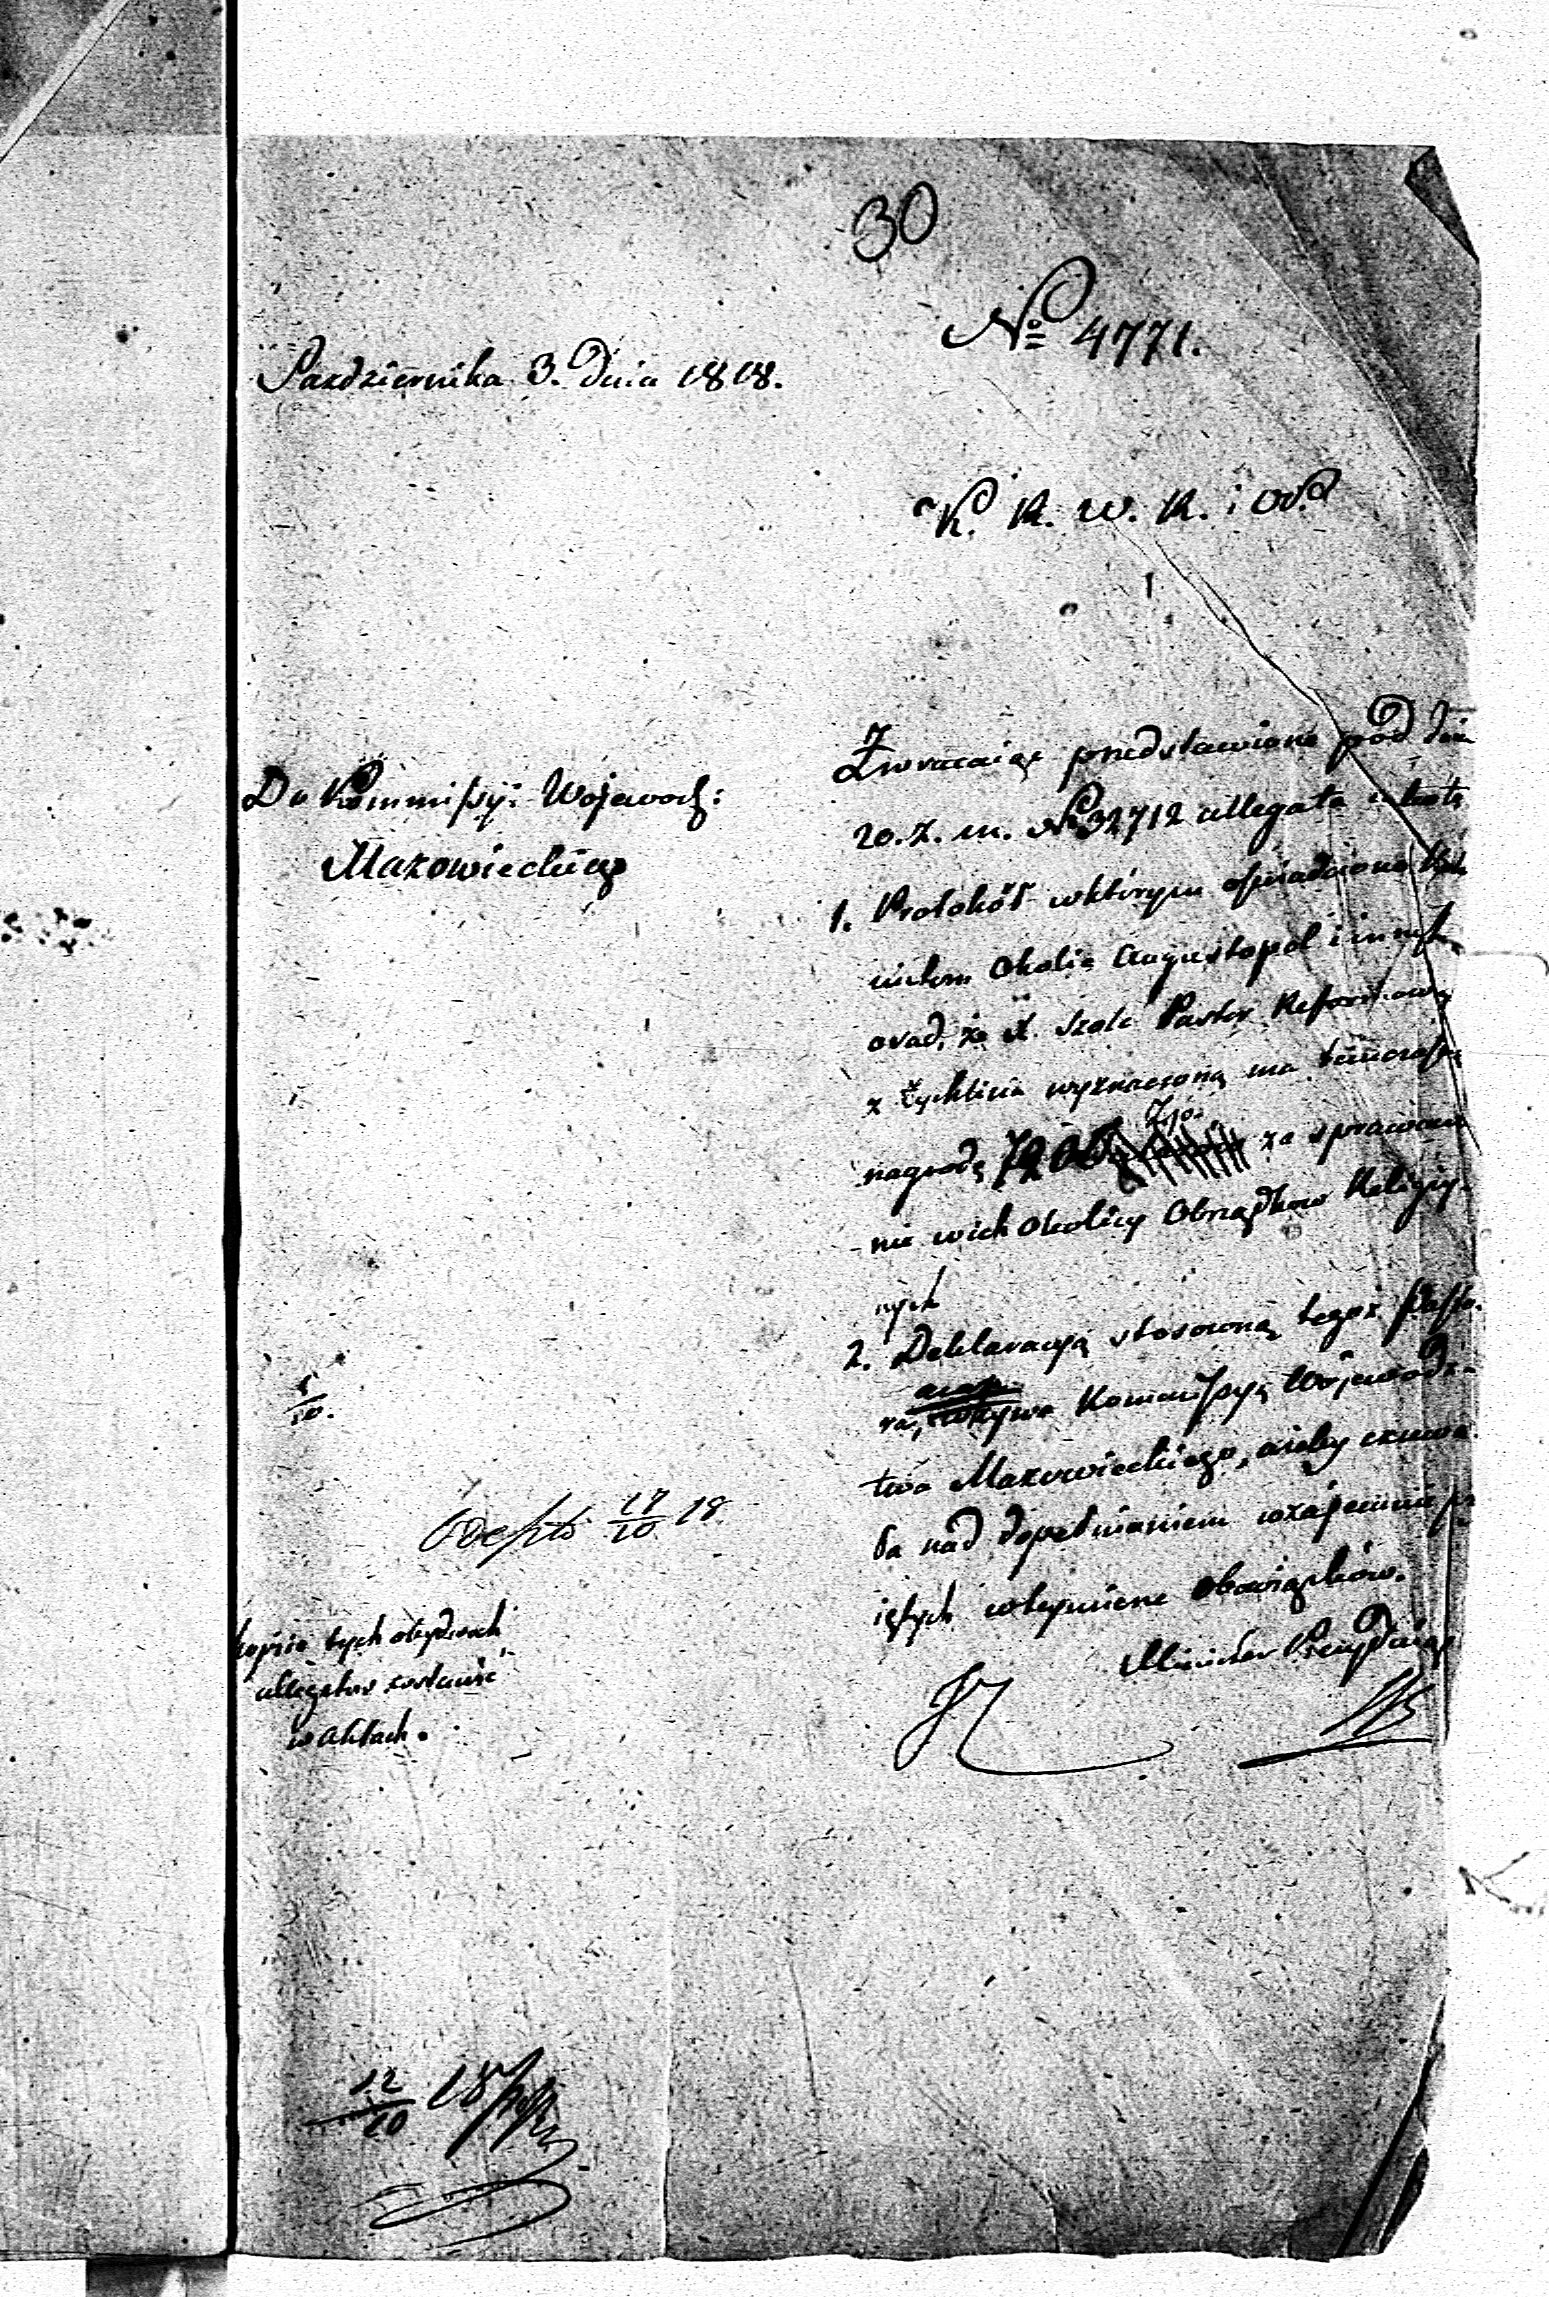 30
No 4771.
Pazdziernika 3. Dnia 1818.
K. R. W. R. i O. P.
Do Kommissyi Wojewodz:
Mazowieckiego
Zwracaiąc przedstawione pod dniem
20. z. m. No 32712 allegata
1. Protokół w którym
Okolic Augustopol i innych
osad, że X. Szolc Pastor Reformowany
z Żychlina wyznaczoną ma
nagrodę za sprawowa
nie w ich Okolicy Obrządkow Religiy-
nych
2. Deklaracyą stosowną tegoż Pasto-
ra, wzywa Kommissyą Wojewodz-
twa Mazowieckiego, aieby czuwa-
ła nad dopełnianiem wzajemnie
iętych w tey mierze Obowiązków.
Minister Prezyduiący
5/10.
17/10 18
kopie tych obydwóch
allegatow zostawić
w aktach.
12/10 18